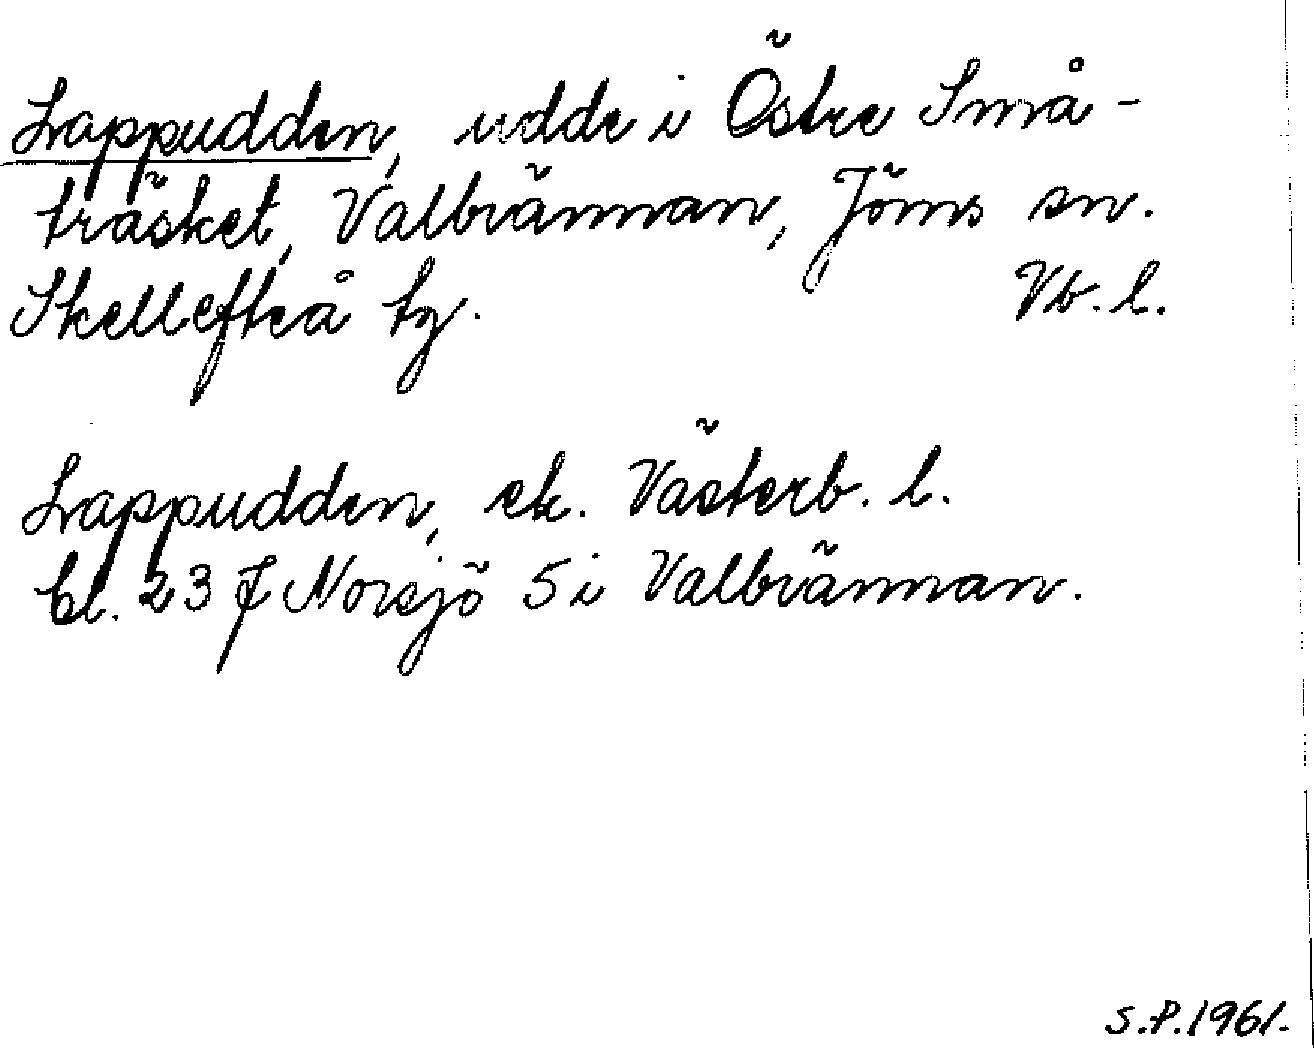 Lappudden, udde i Östre Små-
träsket, Valbrännan, Jörns sn.
Skellefteå tg. Vb. l.
Lappudden, ek. Västerb. l.
bl. 23 J Norsjö 5 i Valbrännan.
S.P. 1961.